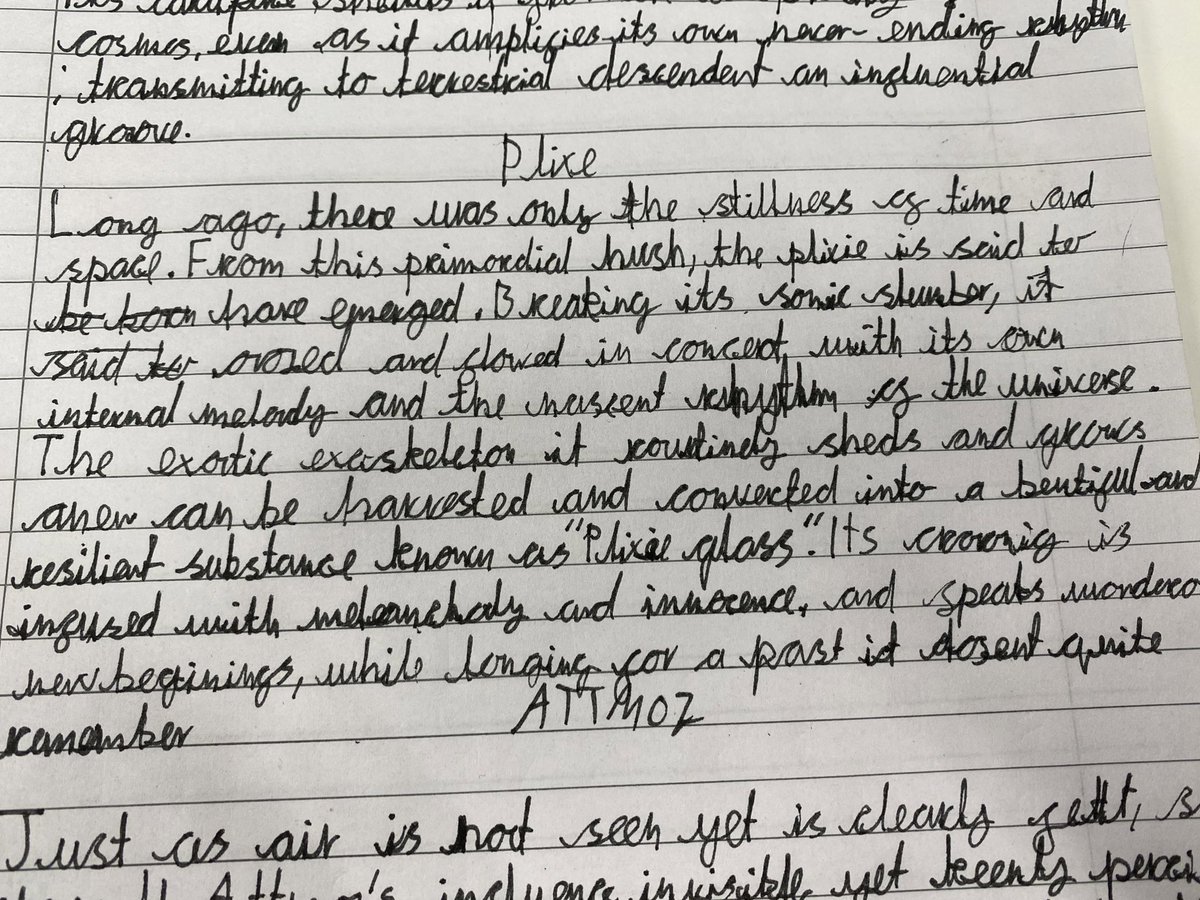 cosmos, even as it amplifies its own never-ending rhythm
; transmitting to terrestrial descendent an influential
groove.
Plixe
Long ago, there was only the stillness of time and
space. From this primordial hush, the plixie is said to
be born have emerged. Breaking its sonic slumber, it
said to oozed and flowed in concert with its own
internal melody and the nascent rhythm of the universe.
The exotic exoskeleton it routinely sheds and grows
anew can be harvested and converted into a beutiful and
resilient substance known as "Plixie glass". Its crooning is
infused with melancholy and innocence, and speaks
new beginings, while longing for a past it dosent quite
ATTMOZ
remember
Just as air is not seen yet is clearly felt, s
influence invisible yet keenly